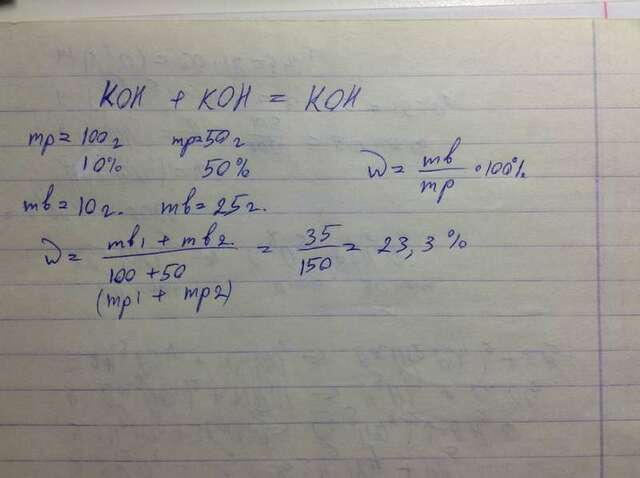 KOH + KOH = KOH
mp=100г mp=50г
10% 50%
ω = mв/mp · 100%
mв=10г. mв=25г.
ω = (mв1 + mв2)/(100+50) = 35/150 = 23,3%
(mp1 + mp2)